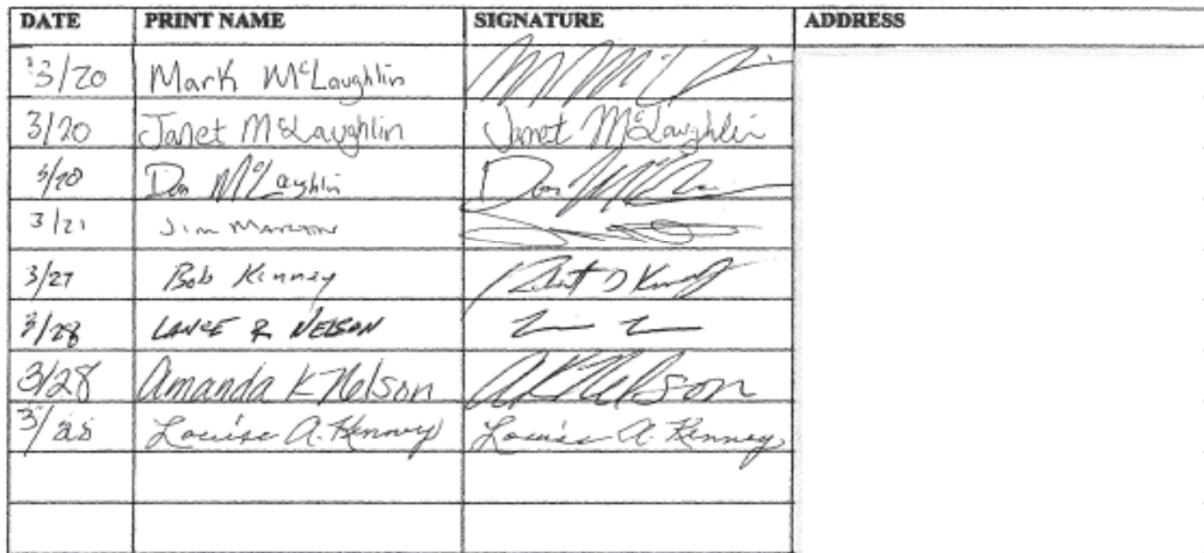 DATE PRINT NAME SIGNATURE ADDRESS
3/20 Mark McLaughlin
3/20 Janet McLaughlin Janet McLaughlin
3/20 Don McLaughlin Don
3/21 Jim
3/27 Bob Kinney
3/28 LANCE R NELSON
3/28 Amanda K Nelson AKNelson
3/28 Louise A. Kenney Louise A. Kenney